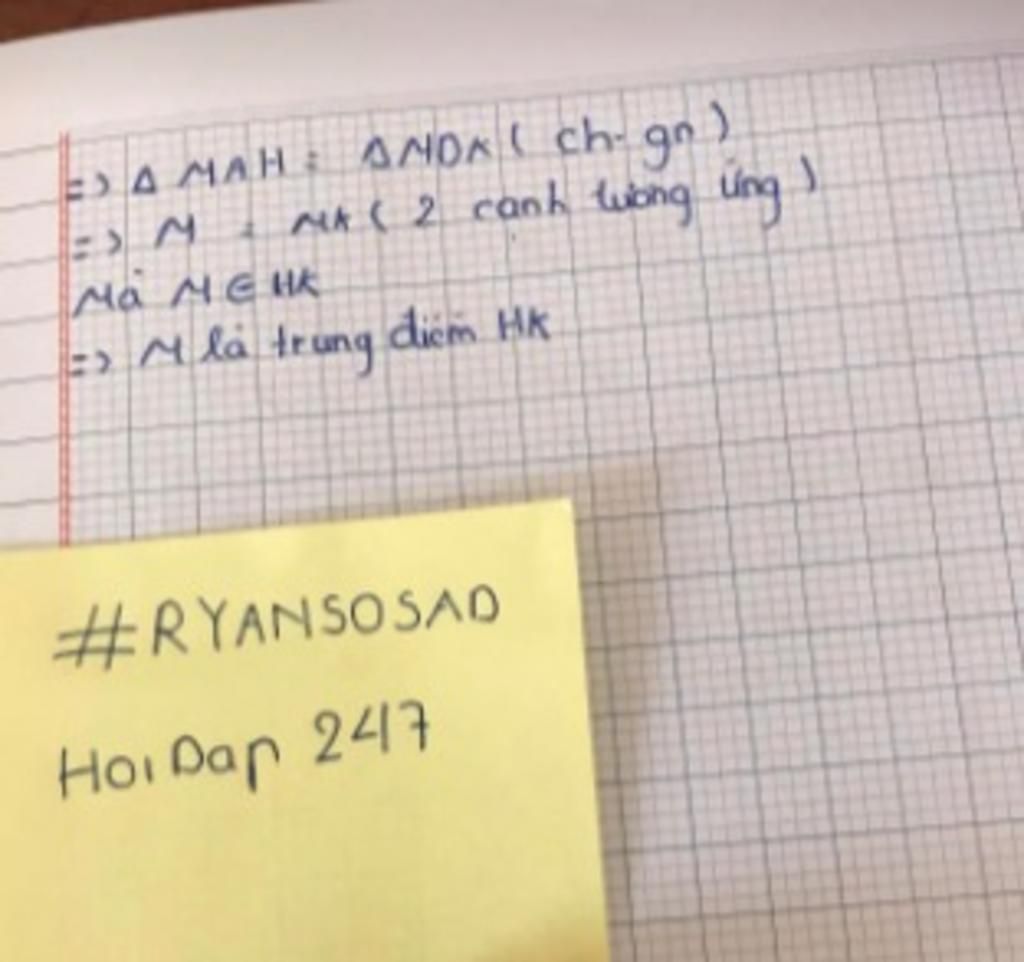 => Δ MAH = Δ MDK ( ch - gn )
=> M = MK ( 2 cạnh tương ứng )
Mà M ∈ HK
=> M là trung điểm HK
#RYANSOSAD
HoiDap 247